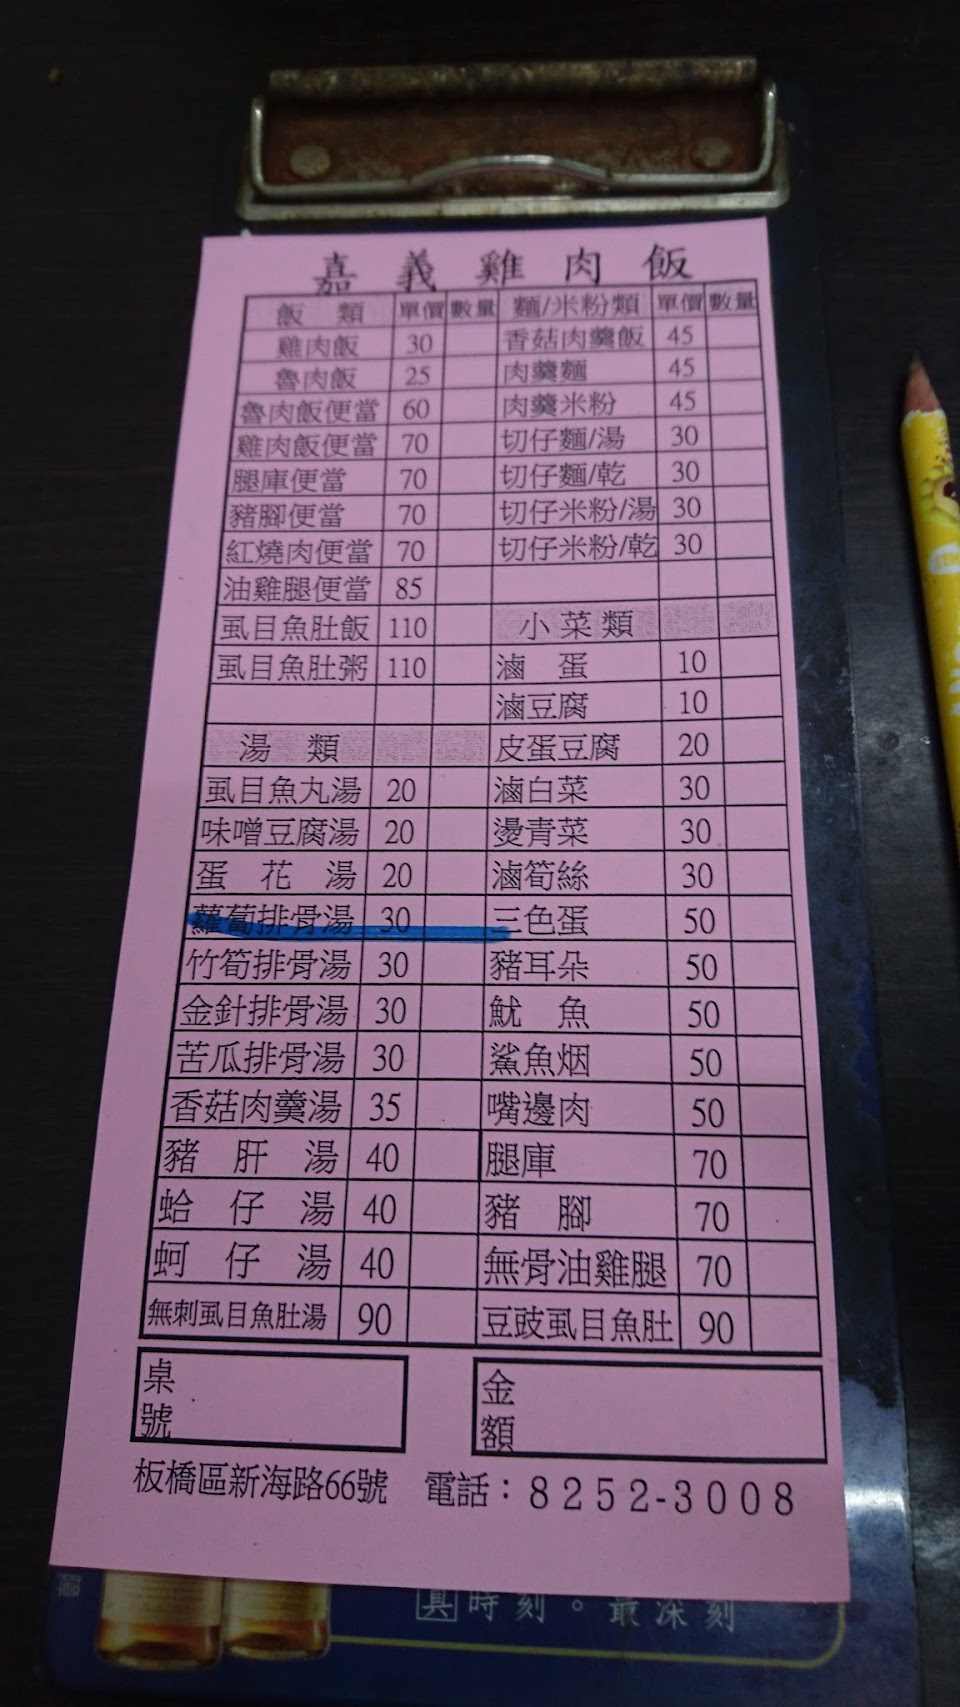 嘉義雞肉飯
飯類 單價 數量 麵/米粉類 單價 數量
雞肉飯 30 香菇肉羹飯 45
魯肉飯 25 肉羹麵 45
魯肉飯便當 60 肉羹米粉 45
雞肉飯便當 70 切仔麵/湯 30
腿庫便當 70 切仔麵/乾 30
豬腳便當 70 切仔米粉/湯 30
紅燒肉便當 70 切仔米粉/乾 30
油雞腿便當 85
虱目魚肚飯 110 小菜類
虱目魚肚粥 110 滷蛋 10
滷豆腐 10
湯類 皮蛋豆腐 20
虱目魚丸湯 20 滷白菜 30
味噌豆腐湯 20 燙青菜 30
蛋花湯 20 滷筍絲 30
蘿蔔排骨湯 30 三色蛋 50
竹筍排骨湯 30 豬耳朵 50
金針排骨湯 30 魷魚 50
苦瓜排骨湯 30 鯊魚烟 50
香菇肉羹湯 35 嘴邊肉 50
豬肝湯 40 腿庫 70
蛤仔湯 40 豬腳 70
蚵仔湯 40 無骨油雞腿 70
無刺虱目魚肚湯 90 豆豉虱目魚肚 90
桌號 金額
板橋區新海路66號 電話：8252-3008
真時刻。最深刻